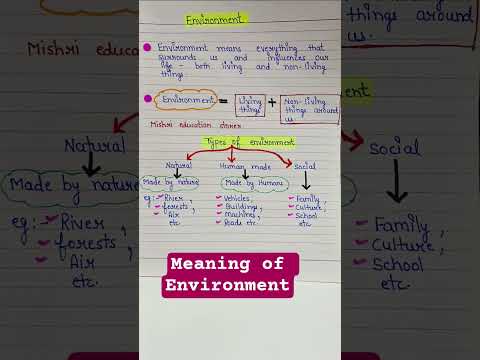 Environment
Environment means everything that
surrounds us and influences our
life - both living and non-living
things.
Environment = Living things + Non-living things around us
Mishri education corner
Types of environment
Natural Human made Social
Made by nature Made by Humans
eg:- River, Vehicles, Family,
forests, Buildings, Culture,
Air Machines, School
etc. Roads etc. etc
Meaning of
Environment
Mishri educa
things around
us.
Natural
Made by nature
eg:- River,
forests,
Air
etc.
Social
Family,
Culture,
School
etc.